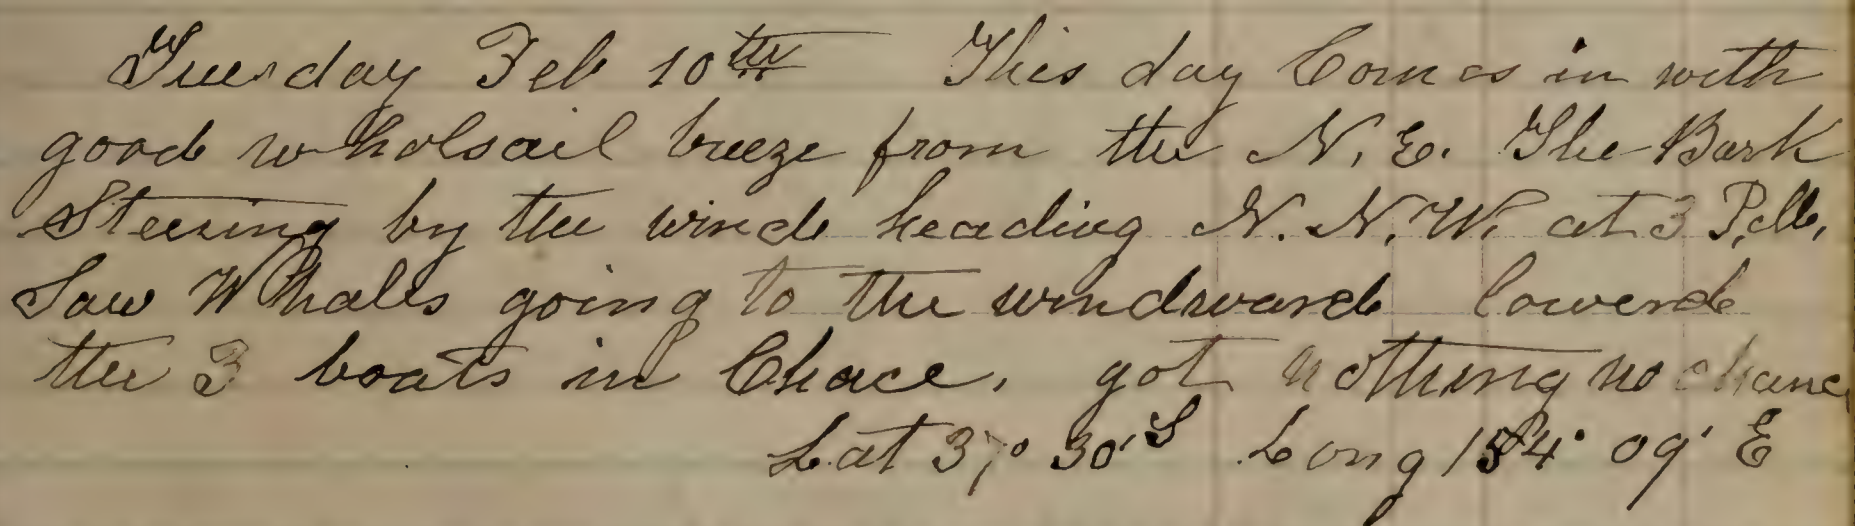 Tuesday Feb 10th This day Comes in with
good wholsail breeze from the N. E. The Bark
Steering by the wind heading N. N. W. at 3 P.M.
Saw Whales going to the windward lowerd
the 3 boats in Chace. got nothing no chance
Lat 37° 30' S Long 154° 09' E